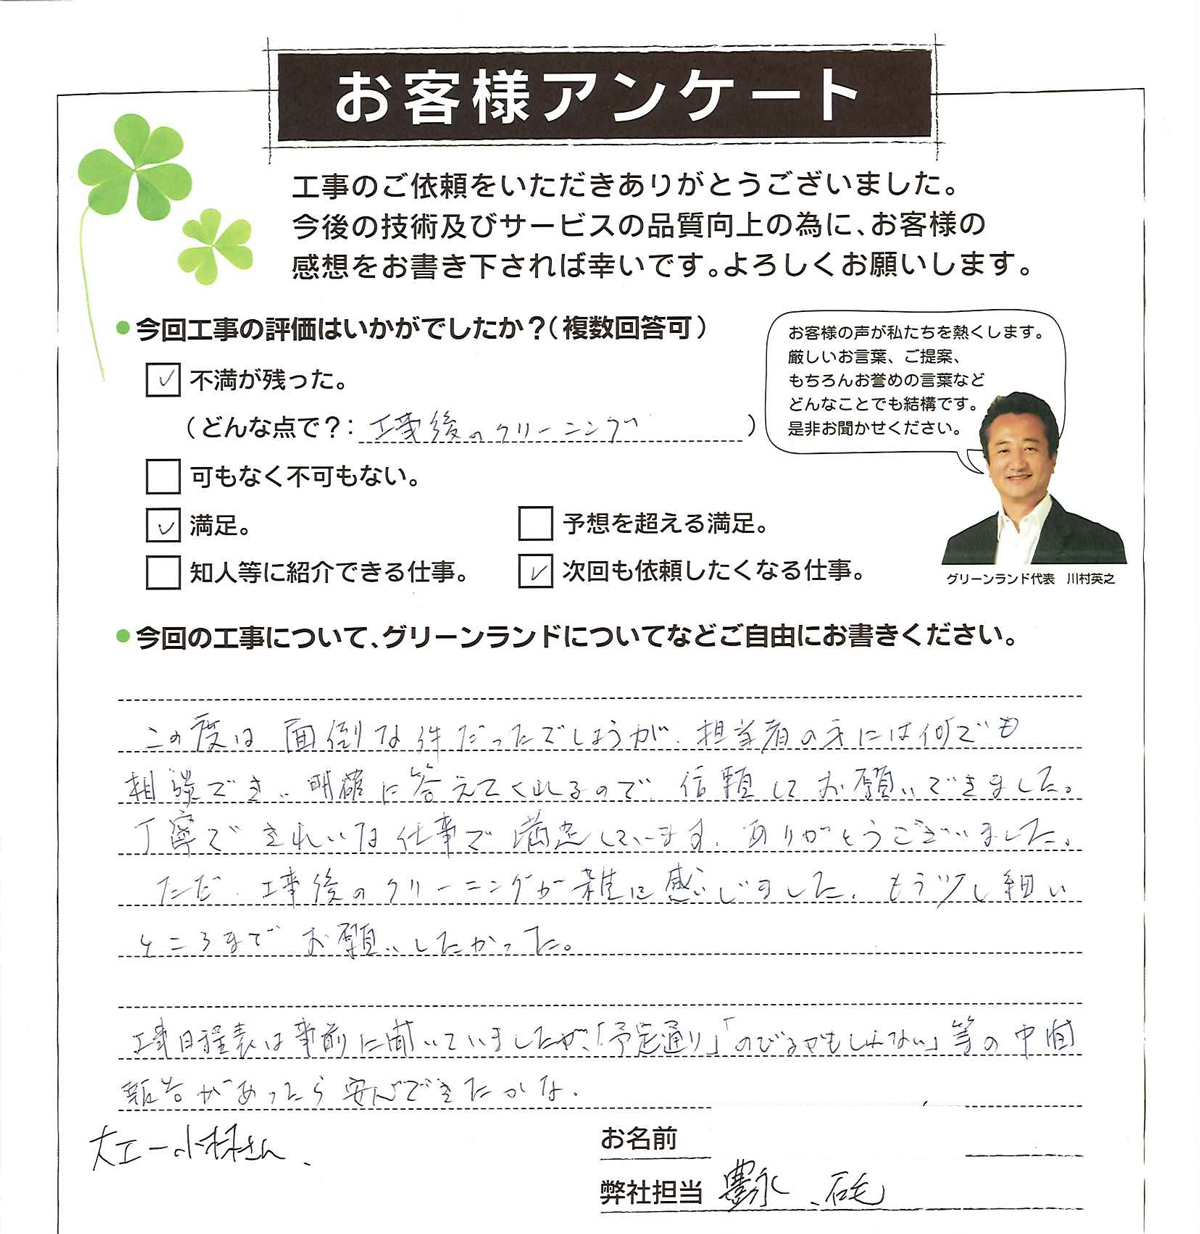 お客様アンケート
工事のご依頼をいただきありがとうございました。
今後の技術及びサービスの品質向上の為に、お客様の
感想をお書き下されば幸いです。よろしくお願いします。
●今回工事の評価はいかがでしたか?(複数回答可)
お客様の声が私たちを熱くします。
厳しいお言葉、ご提案、
もちろんお誉めの言葉など
どんなことでも結構です。
是非お聞かせください。
グリーンランド代表 川村英之
不満が残った。
(どんな点で?:工事後のクリーニング)
可もなく不可もない。
満足。
予想を超える満足。
知人等に紹介できる仕事。
次回も依頼したくなる仕事。
●今回の工事について、グリーンランドについてなどご自由にお書きください。
この度は面倒な件だったでしょうが、担当者の方には何でも
相談でき、明確に答えてくれるので、信頼してお願いできました。
丁寧できれいな仕事で満足しています。ありがとうございました。
ただ、工事後のクリーニングが雑に感じました。もう少し細い
ところまでお願いしたかった。
工事日程表は事前に聞いていましたが、「予定通り」「のびるかもしれない」等の中間
報告があったら安心できたかな。
大工ー小林さん、
お名前
弊社担当 豊永、石毛